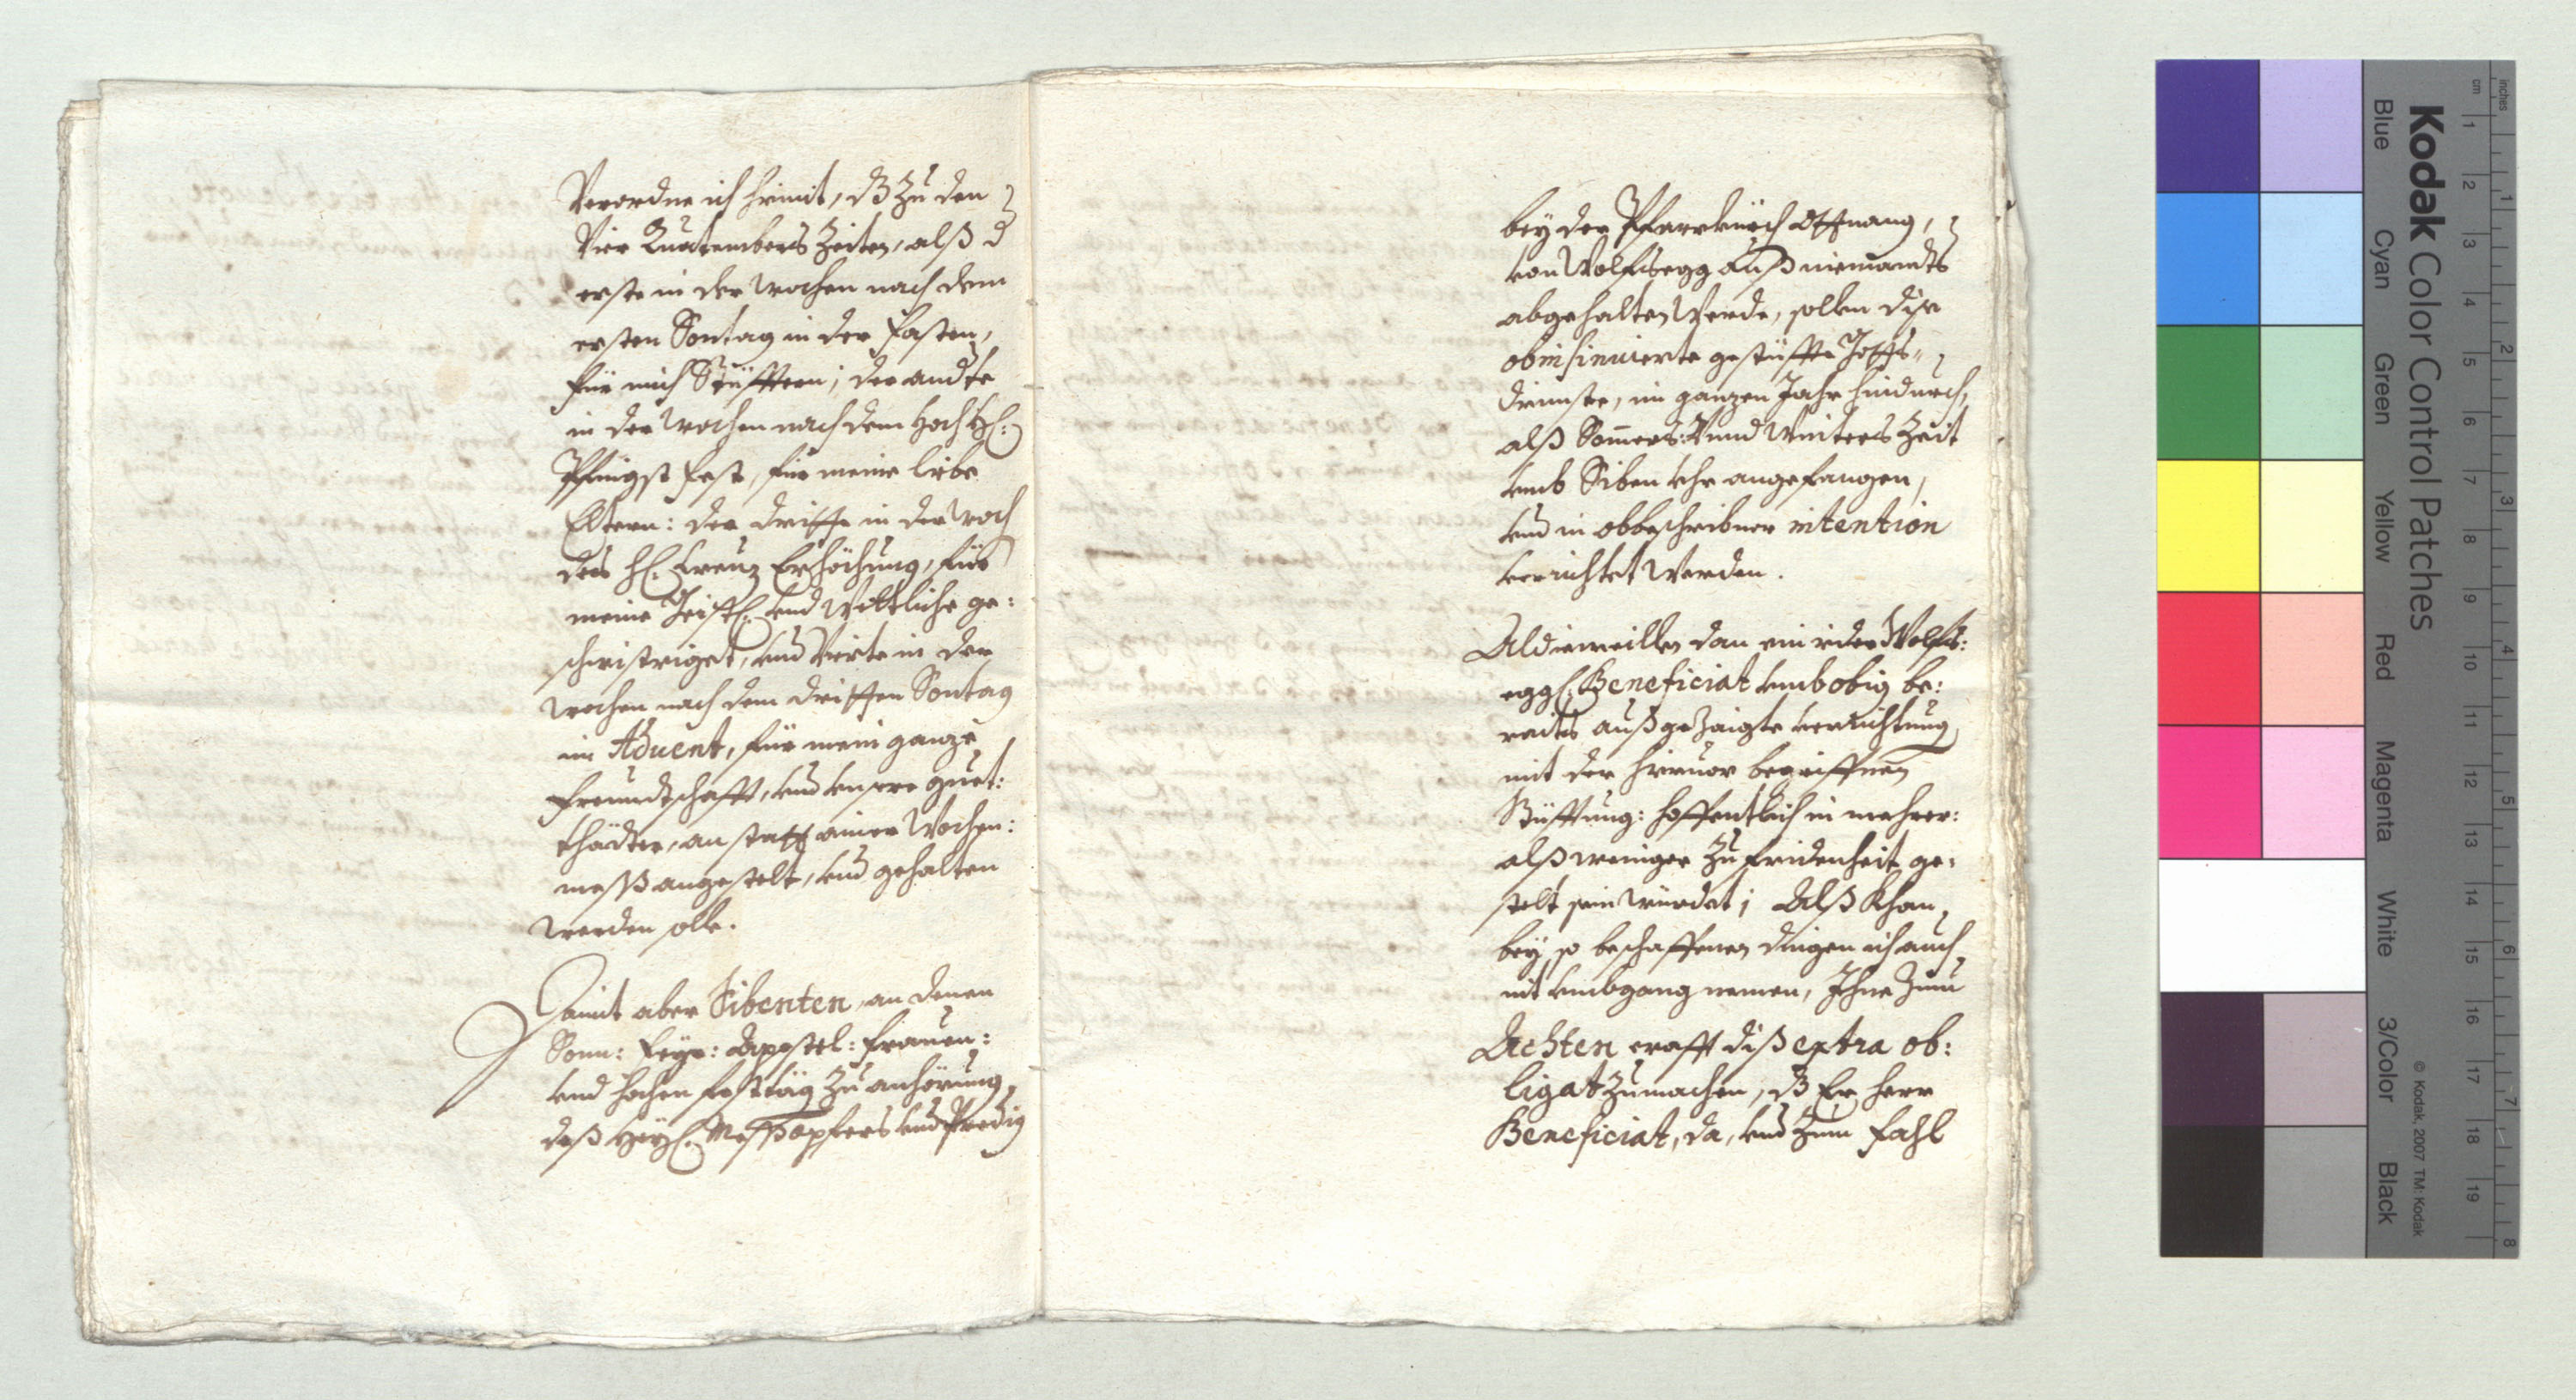 Verordne ich hiemit, dz zu den
Vier Quatembers Zeiten, alß d
erste in der Wochen nach dem
ersten Sontag in der Fasten,
für mich Stüfftern; der andte
in der Wochen nach dem Hoch Hl:
Pfingst Fest, für meine liebe
Eltern: der dritte in der Woch
des Hl: Creuz Erhöchung, für
meine Geistl: und Weltliche ge:
schwistriget, und Vierte in der
Wochen nach dem dritten Sontag
im Aduent, für mein ganze
Freundtschafft, und unsere guet:
thädter, anstatt einer Wochen:
mess angestelt, und gehalten
werden solle.
Damit aber Sibenten, an denen
Sonn: Feyr: Apostel: Frauen:
und hochen festtäg zu anhörung
deß Heyl: Meßopfers und Predig
bey der Pfarrkürch Ottnang,
von Wolfsegg auß niemandts
abgehalten Werde, sollen dise
obinsinuierte gestüffte Gotts-
dienste, im ganzen Jahr hindurch,
alß Sommers: Vnnd Winters Zeit
umb Siben Uhr angefangen,
und in obbeschribner intention
verrichtet werden.
Aldieweillen dan ein ieder Wolfs:
eggl: Beneficiat umb obig be:
reits außgezaigte verrichtung
mit der hieuor begriffnen
Stüfftung: hoffentlich in mehrer:
alß weniger zufridenheit ge:
stelt sein würdet; Alß Khan
bey so beschaffenen dingen ich auch
nit umbgang nemen, Ihne zum
Achten crafft diß extra ob:
ligat zumachen, dz Er Herr
Beneficiat, da, und zum Fahl
Kodak Color Control Patches
Blue Cyan Green Yellow Red Magenta White 3/Color Black
© Kodak, 2007 TM: Kodak
inches 1 2 3 4 5 6 7 8
cm 1 2 3 4 5 6 7 8 9 10 11 12 13 14 15 16 17 18 19